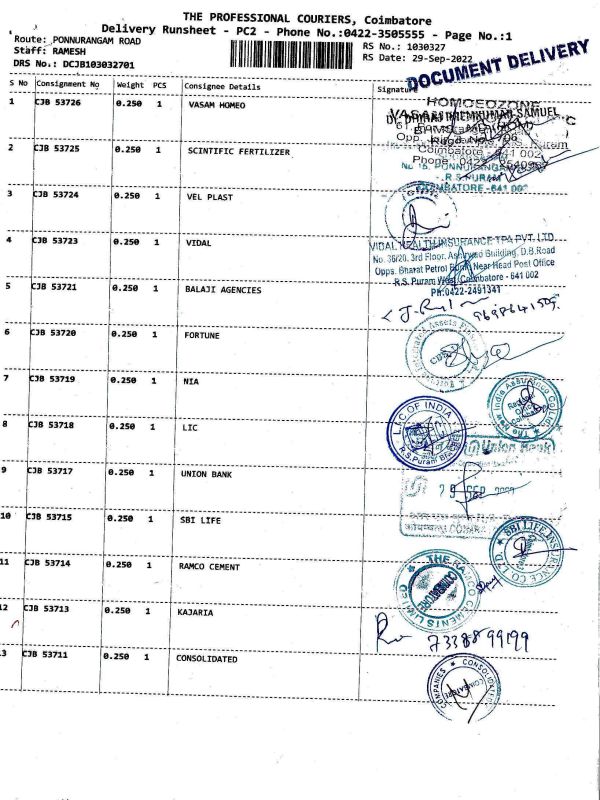 THE PROFESSIONAL COURIERS, Coimbatore
Delivery Runsheet - PC2 - Phone No.:0422-3505555 - Page No.:1
Route: PONNURANGAM ROAD
Staff: RAMESH
DRS No.: DCJB103032701
RS No.: 1030327
RS Date: 29-Sep-2022
DOCUMENT DELIVERY
S No Consignment No Weight PCS Consignee Details Signature
1 CJB 53726 0.250 1 VASAM HOMEO
HOMOEOZONE
Coimbatore - 641 002
2 CJB 53725 0.250 1 SCINTIFIC FERTILIZER
R.S.PURAM
COIMBATORE-641 002
3 CJB 53724 0.250 1 VEL PLAST
4 CJB 53723 0.250 1 VIDAL
VIDAL HEALTH INSURANCE TPA PVT. LTD.
No. 36/20, 3rd Floor, Building, D.B.Road
Opps. Bharat Petrol Bunk, Near Head Post Office
R.S. Puram West, Coimbatore - 641 002
Ph:0422-2491341
5 CJB 53721 0.250 1 BALAJI AGENCIES
6 CJB 53720 0.250 1 FORTUNE
7 CJB 53719 0.250 1 NIA
8 CJB 53718 0.250 1 LIC
L.I.C OF INDIA
R.S.Puram Branch
9 CJB 53717 0.250 1 UNION BANK
Union Bank
29 SEP
10 CJB 53715 0.250 1 SBI LIFE
SBI LIFE INSURANCE CO. LTD.
11 CJB 53714 0.250 1 RAMCO CEMENT
THE RAMCO CEMENTS LIMITED
COIMBATORE
12 CJB 53713 0.250 1 KAJARIA
7338899199
13 CJB 53711 0.250 1 CONSOLIDATED
CONSOLIDATED COMPANIES
COIMBATORE